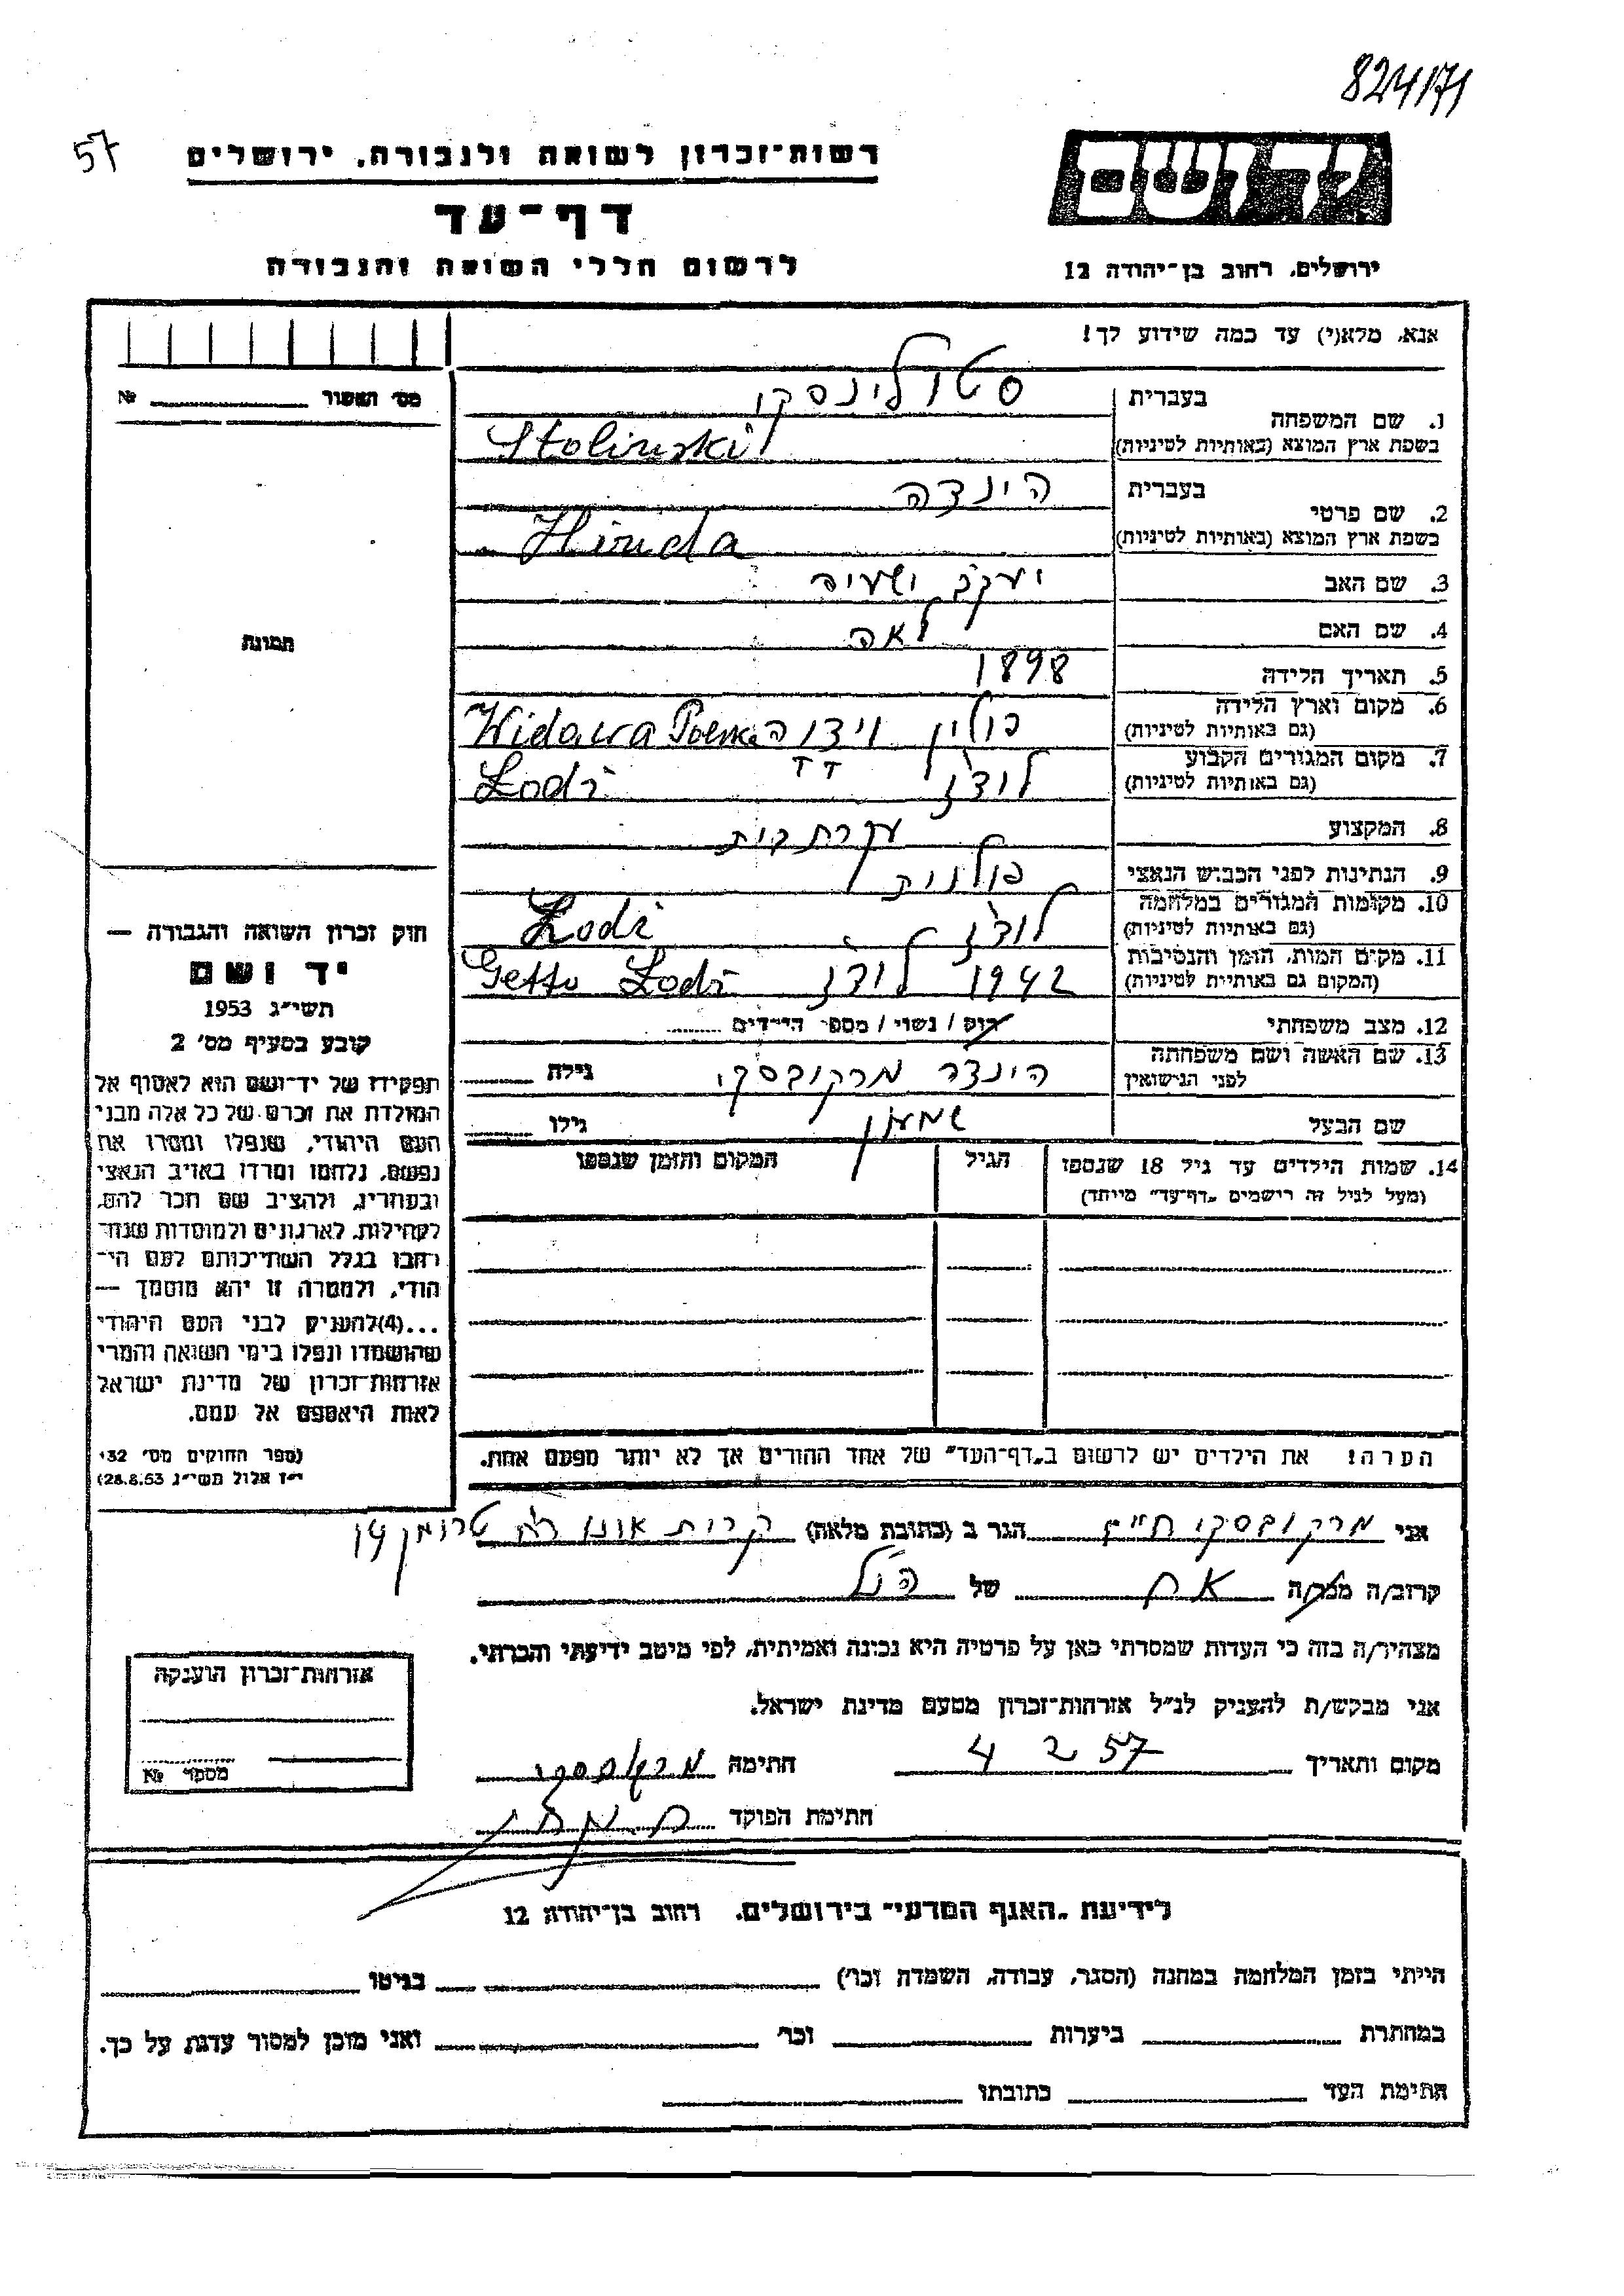 824171
57
רשות־זכרון לשואה ולגבורה, ירושלים
יד ושם
דף־עד
לרשום חללי השואה והגבורה
ירושלים, רחוב בן־יהודה 12
אנא, מלא(י) עד כמה שידוע לך!
מס' האשור № 
בעברית סטולינסקי
1. שם המשפחה
בשפת ארץ המוצא (באותיות לטיניות) Stolinski
בעברית הינדה
2. שם פרטי
בשפת ארץ המוצא (באותיות לטיניות) Hinda
3. שם האב יעקב ישעיה
4. שם האם לאה
5. תאריך הלידה 1898
6. מקום וארץ הלידה פולין וידוה Widawa
(גם באותיות לטיניות)
7. מקום המגורים הקבוע לודז Łodź
(גם באותיות לטיניות)
8. המקצוע עקרת בית
9. הנתינות לפני הכבוש הנאצי פולנית
10. מקומות המגורים במלחמה לודז Łodź
(גם באותיות לטיניות)
11. מקום המות, הזמן והנסיבות 1942 לודז Getto Łodź
(המקום גם באותיות לטיניות)
12. מצב משפחתי רוק / נשוי / מספר הילדים
13. שם האשה ושם משפחתה הינדה מרקובסקי גילה
לפני הנישואין
שם הבעל שמעון גילו
14. שמות הילדים עד גיל 18 שנספו הגיל המקום והזמן שנספו
(מעל לגיל זה רישמים "דף־עד" מיוחד)
הערה! את הילדים יש לרשום ב"דף־העד" של אחד ההורים אך לא יותר מפעם אחת.
תמונה
חוק זכרון השואה והגבורה —
יד ושם
תשי"ג 1953
קובע בסעיף מס' 2
תפקידו של יד־ושם הוא לאסוף אל
המולדת את זכרם של כל אלה מבני
העם היהודי, שנפלו ומסרו את
נפשם, נלחמו ומרדו באויב הנאצי
ובעוזריו, ולהציב שם וזכר להם,
לקהילות, לארגונים ולמוסדות שנח־
רבו בגלל השתייכותם לעם הי־
הודי, ולמטרה זו יהא מוסמך —
...(4)להעניק לבני העם היהודי
שהושמדו ונפלו בימי השואה והמרי
אזרחות־זכרון של מדינת ישראל
לאות היאספם אל עמם.
(ספר החוקים מס' 132
י"ז אלול תשי"ג 28.8.53)
אני מרקובסקי חיים הגר ב (כתובת מלאה) קרית אונו רח טרומן 14
קרוב/ה מכר/ה אח של הנ"ל
מצהיר/ה בזה כי העדות שמסרתי כאן על פרטיה היא נכונה ואמיתית, לפי מיטב ידיעתי והכרתי.
אני מבקש/ת להעניק לנ"ל אזרחות־זכרון מטעם מדינת ישראל.
מקום ותאריך 4 2 57 חתימה מרקובסקי
חתימת הפוקד
אזרחות־זכרון הוענקה
מספר №
לידיעת "האגף המדעי" בירושלים, רחוב בן־יהודה 12
הייתי בזמן המלחמה במחנה (הסגר, עבודה, השמדה וכו') בגיטו
במחתרת ביערות וכו' ואני מוכן למסור עדות על כך.
חתימת העד כתובתו